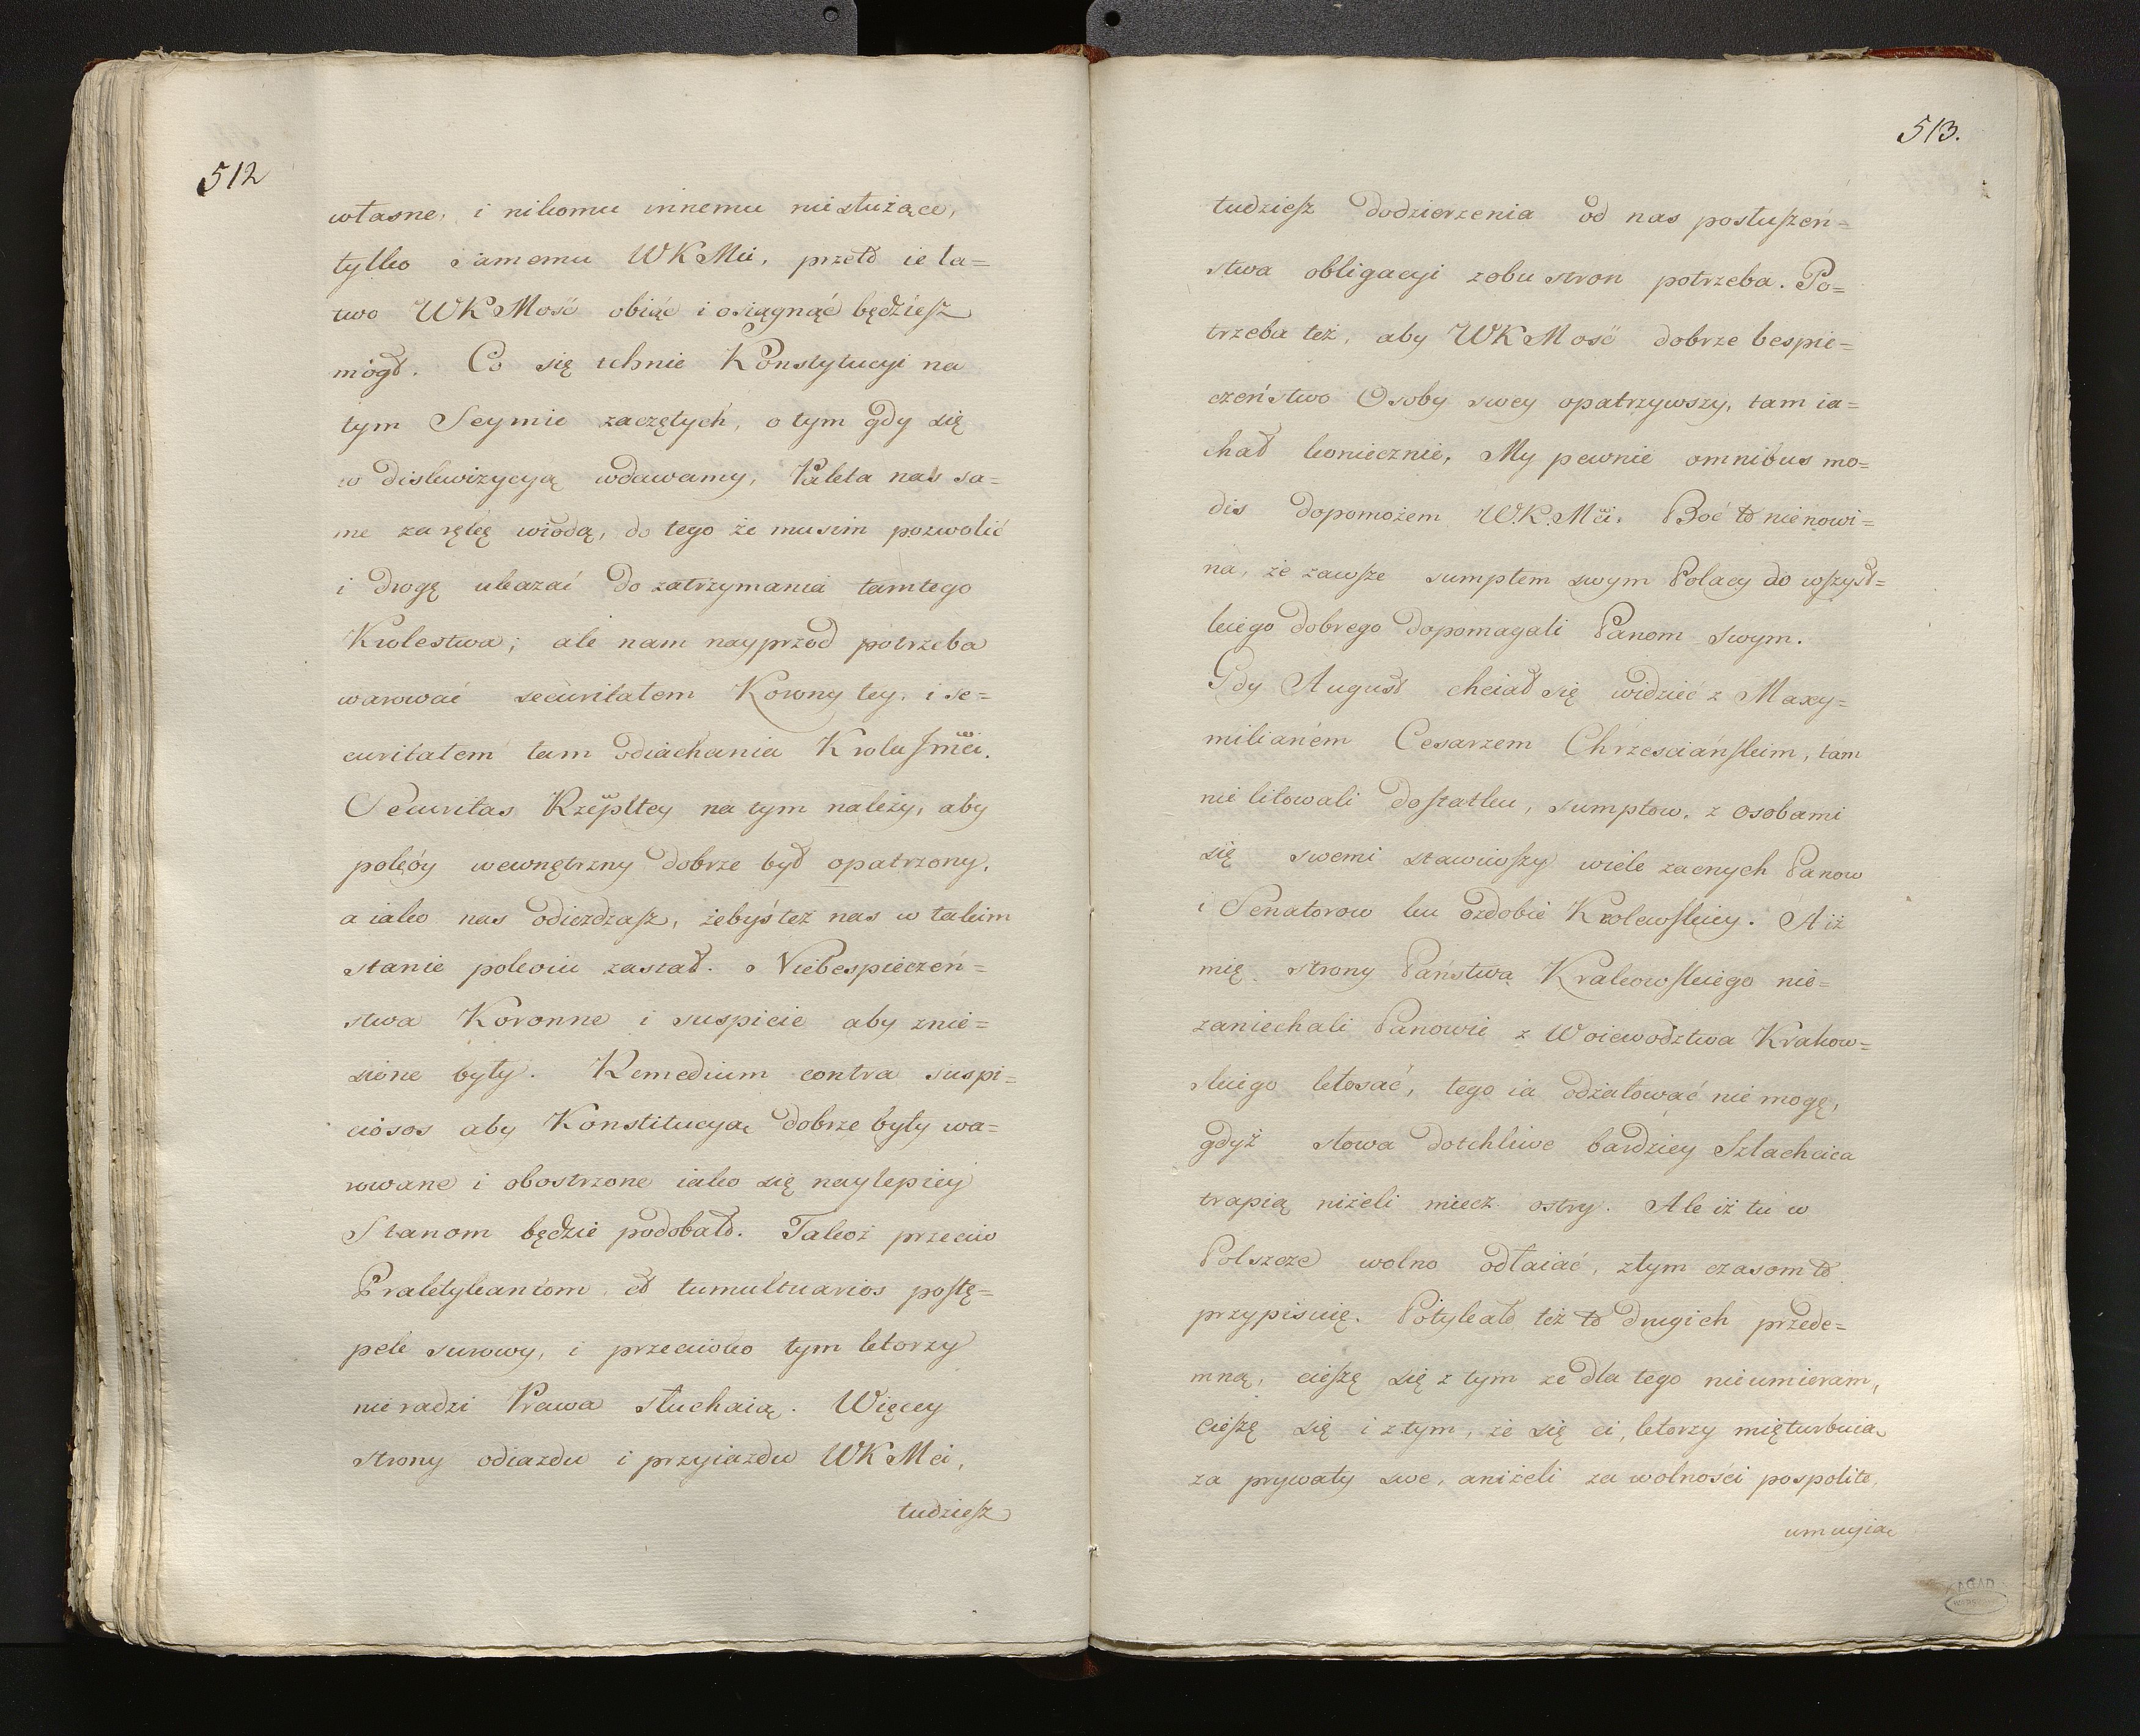 512
własne, i nikomu innemu niesłużące,
tylko samemu WKMci, przeto ie ła=
two WKMość obiąć i osiągnąć będziesz
mógł. Co się tchnie Konstytucyi na
tym Seymie zaczętych, o tym gdy się
w diskwizycyą wdawamy, Pakta nas sa=
me za rękę wiodą, do tego że musim pozwolić
i drogę ukazać do zatrzymania tamtego
Krolestwa; ale nam nayprzod potrzeba
warować securitatem Korony tey, i se=
curitatem tam odiachania Krola Jmći.
Securitas Rzepltey na tym należy, aby
pokóy wewnętrzny dobrze był opatrzony,
a iako nas odieżdżasz, żebyś też nas w takim
stanie pokoiu zastał. Niebespieczeń=
stwa Koronne i suspicie aby znie=
sione były. Remedium contra suspi=
ciosos aby Konstitucyą dobrze były wa=
rowane i obostrzone iako się naylepiey
Stanom będzie podobało. Takoż przeciw
Praktykantom, et tumultuarios postę=
pek surowy, i przeciwko tym ktorzy
nieradzi Prawa słuchaią. Więcey
strony odiazdu i przyiazdu WKMci,
tudziesz
513.
tudziesz dodzierżenia od nas posłuszeń=
stwa obligacyi zobu stron potrzeba. Po=
trzeba też, aby WKMość dobrze bespie=
czeństwo Osoby swey opatrzywszy, tam ia=
chał koniecznie, My pewnie omnibus mo=
dis dopomożem W.K.Mći. Boć to nienowi=
na, że zawsze sumptem swym Polacy do wszyst=
kiego dobrego dopomagali Panom swym.
Gdy August chciał się widzieć z Maxy=
milianem Cesarzem Chrześciańskim, tam
nielitowali dostatku, sumptow, z osobami
się swemi stawiwszy wiele zacnych Panow
i Senatorow ku ozdobie Krolewskiey. A iż
mię strony Państwa Krakowskiego nie=
zaniechali Panowie z Woiewodztwa Krakow=
skiego ktosać, tego ia odżałować nie mogę,
gdyż słowa dotchliwe bardziey Szlachcica
trapią niżeli miecz ostry. Ale iż tu w
Polszcze wolno odłaiać, złym czasom to
przypisuię. Potykało też to drugich przede=
mną, cieszę się z tym że dla tego nieumieram,
cieszę się i z tym, że się ci, ktorzy mię turbuią
za prywaty swe, aniżeli za wolności pospolite,
umuyią
AGAD